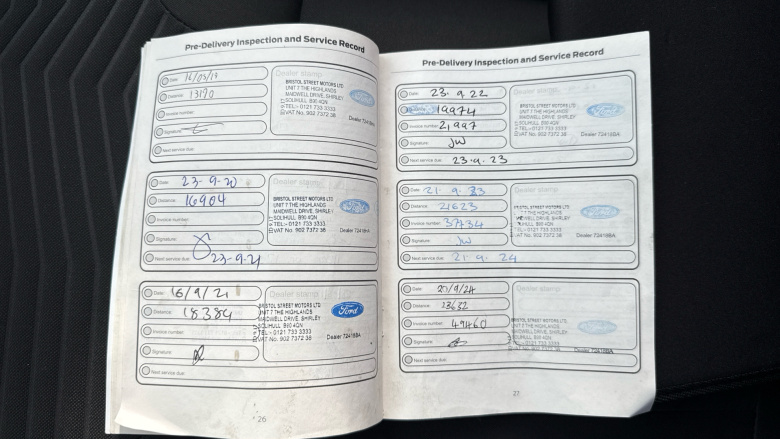 Pre-Delivery Inspection and Service Record
Date: 16/03/19
Distance: 13170
Invoice number:
Signature:
Next service due:
Dealer stamp
BRISTOL STREET MOTORS LTD
UNIT 7 THE HIGHLANDS
MAIDWELL DRIVE, SHIRLEY
SOLIHULL B90 4QN
TEL:- 0121 733 3333
VAT No. 902 7372 38
Dealer 72419BA
Date: 23-9-20
Distance: 16904
Invoice number:
Signature:
Next service due: 23-9-21
Dealer stamp
BRISTOL STREET MOTORS LTD
UNIT 7 THE HIGHLANDS
MAIDWELL DRIVE, SHIRLEY
SOLIHULL B90 4QN
TEL:- 0121 733 3333
VAT No. 902 7372 38
Date: 16/9/21
Distance: 18384
Invoice number:
Signature:
Next service due:
Dealer stamp
BRISTOL STREET MOTORS LTD
UNIT 7 THE HIGHLANDS
MAIDWELL DRIVE, SHIRLEY
SOLIHULL B90 4QN
TEL:- 0121 733 3333
VAT No. 902 7372 38
Ford
Dealer 72419BA
26
Pre-Delivery Inspection and Service Record
Date: 23.9.22
19974
Invoice number: 21997
Signature: JW
Next service due: 23.9.23
Dealer stamp
BRISTOL STREET MOTORS LTD
UNIT 7 THE HIGHLANDS
MAIDWELL DRIVE, SHIRLEY
SOLIHULL B90 4QN
TEL:- 0121 733 3333
VAT No. 902 7372 38
Dealer 72419BA
Date: 21.9.23
Distance: 21623
Invoice number: 37434
Signature: JW
Next service due: 21.9.24
Dealer stamp
BRISTOL STREET MOTORS LTD
THE HIGHLANDS
DRIVE, SHIRLEY
B90 4QN
TEL:- 0121 733 3333
VAT No. 902 7372 38
Dealer 72419BA
Date: 20/9/24
Distance: 23632
Invoice number: 49460
Signature:
Next service due:
Dealer stamp
BRISTOL STREET MOTORS LTD
UNIT 7 THE HIGHLANDS
MAIDWELL DRIVE, SHIRLEY
SOLIHULL B90 4QN
TEL:- 0121 733 3333
VAT No. 902 7372 38
Dealer 72419BA
27